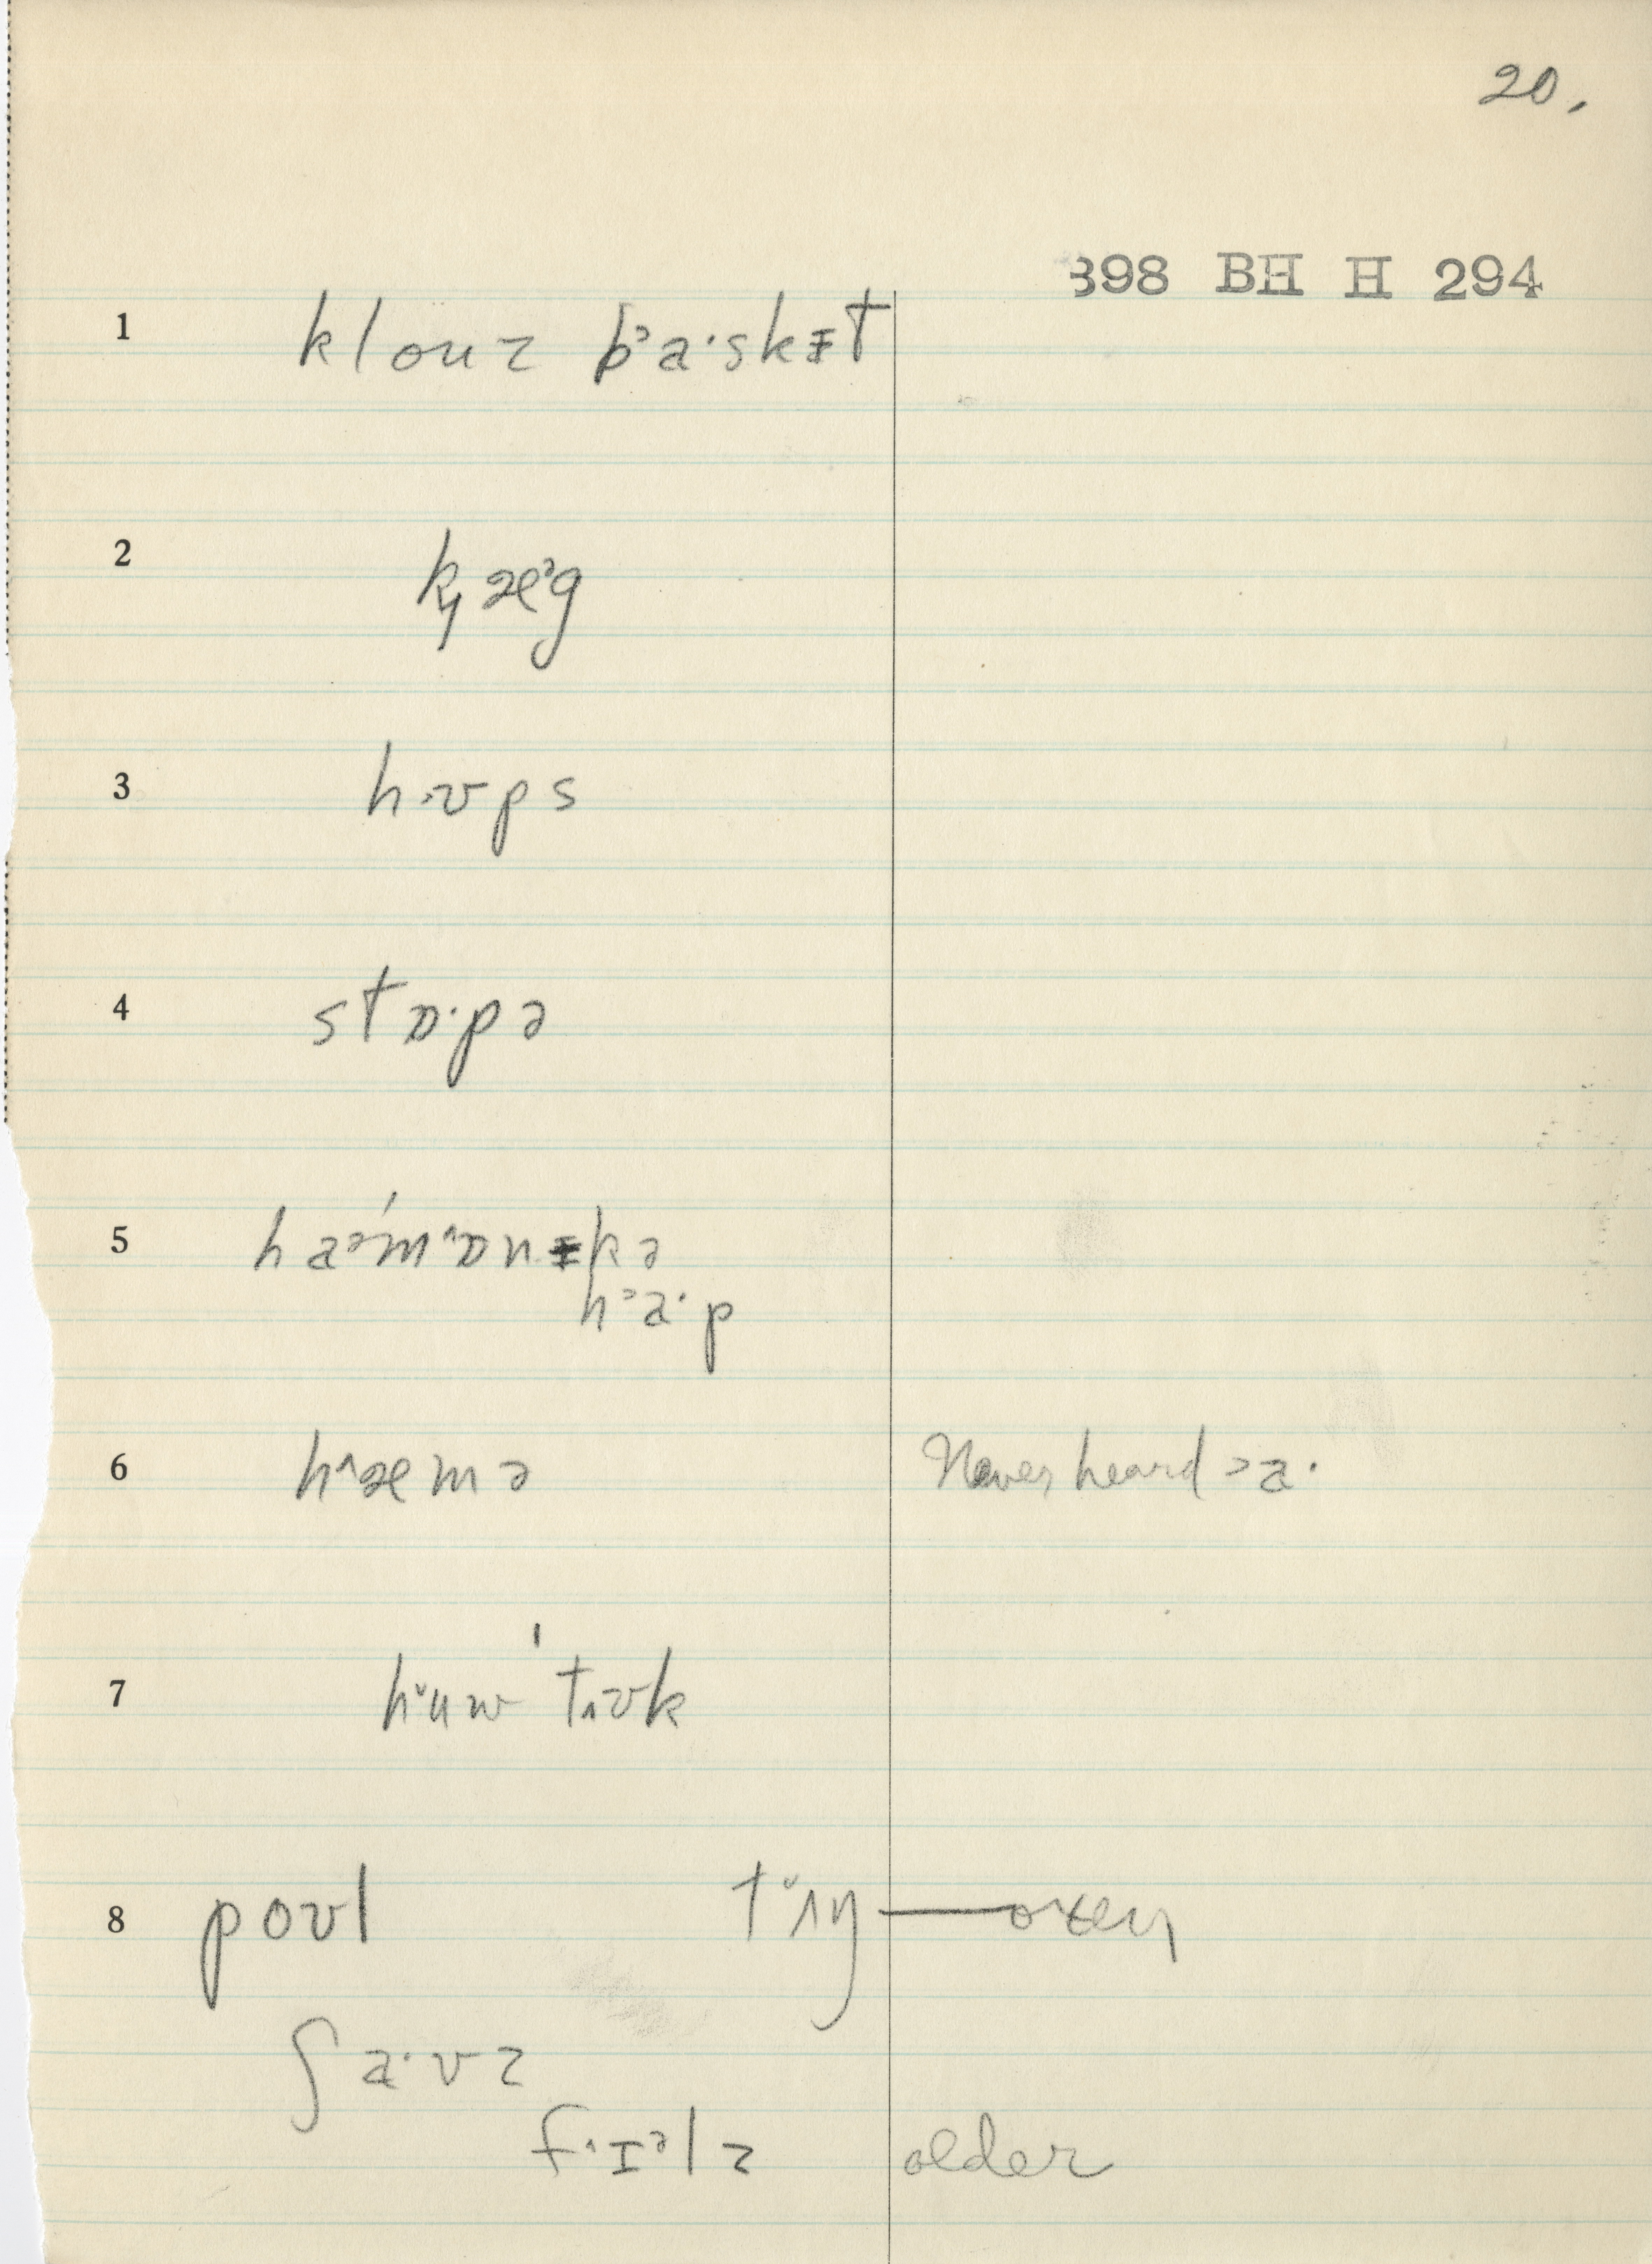 20.
398 BH H 294
1 klouz b᾽a·skɪ̵t
2 kɟæᵊg
3 hʊps
4 stɒ·pə
5 haᵊ´mˆɒnɪ̵kə
haᵊ·p
6 hˆæmə Never heard >a·
7 h˅uw ˈtʌʊk
8 poʊl t˅ʌŋ — oxen
ʃa·vz
fˈɪᵊlz older